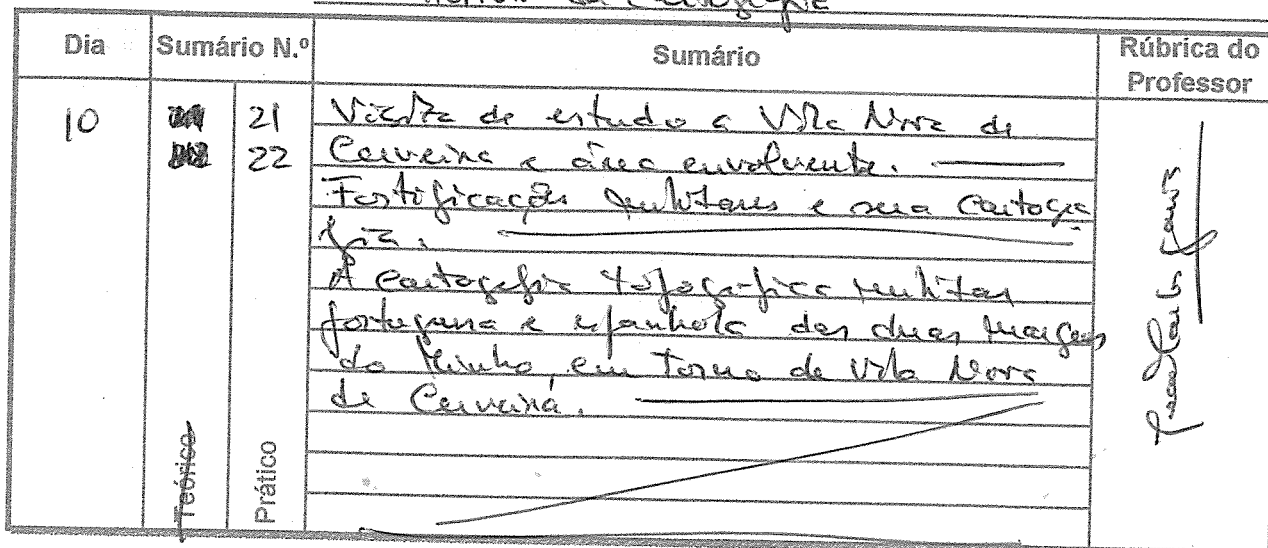 da Cartografia
Dia
Sumário N.º
Sumário
Rúbrica do
Professor
10
21
22
Visita de estudo a Vila Nova de
Cerveira e área envolvente.
Fortificações militares e sua Cartogra
fia.
A cartografia topográfica militar
portuguesa e espanhola das duas margens
do Minho, em torno de Vila Nova
de Cerveira.
Teórico
Prático